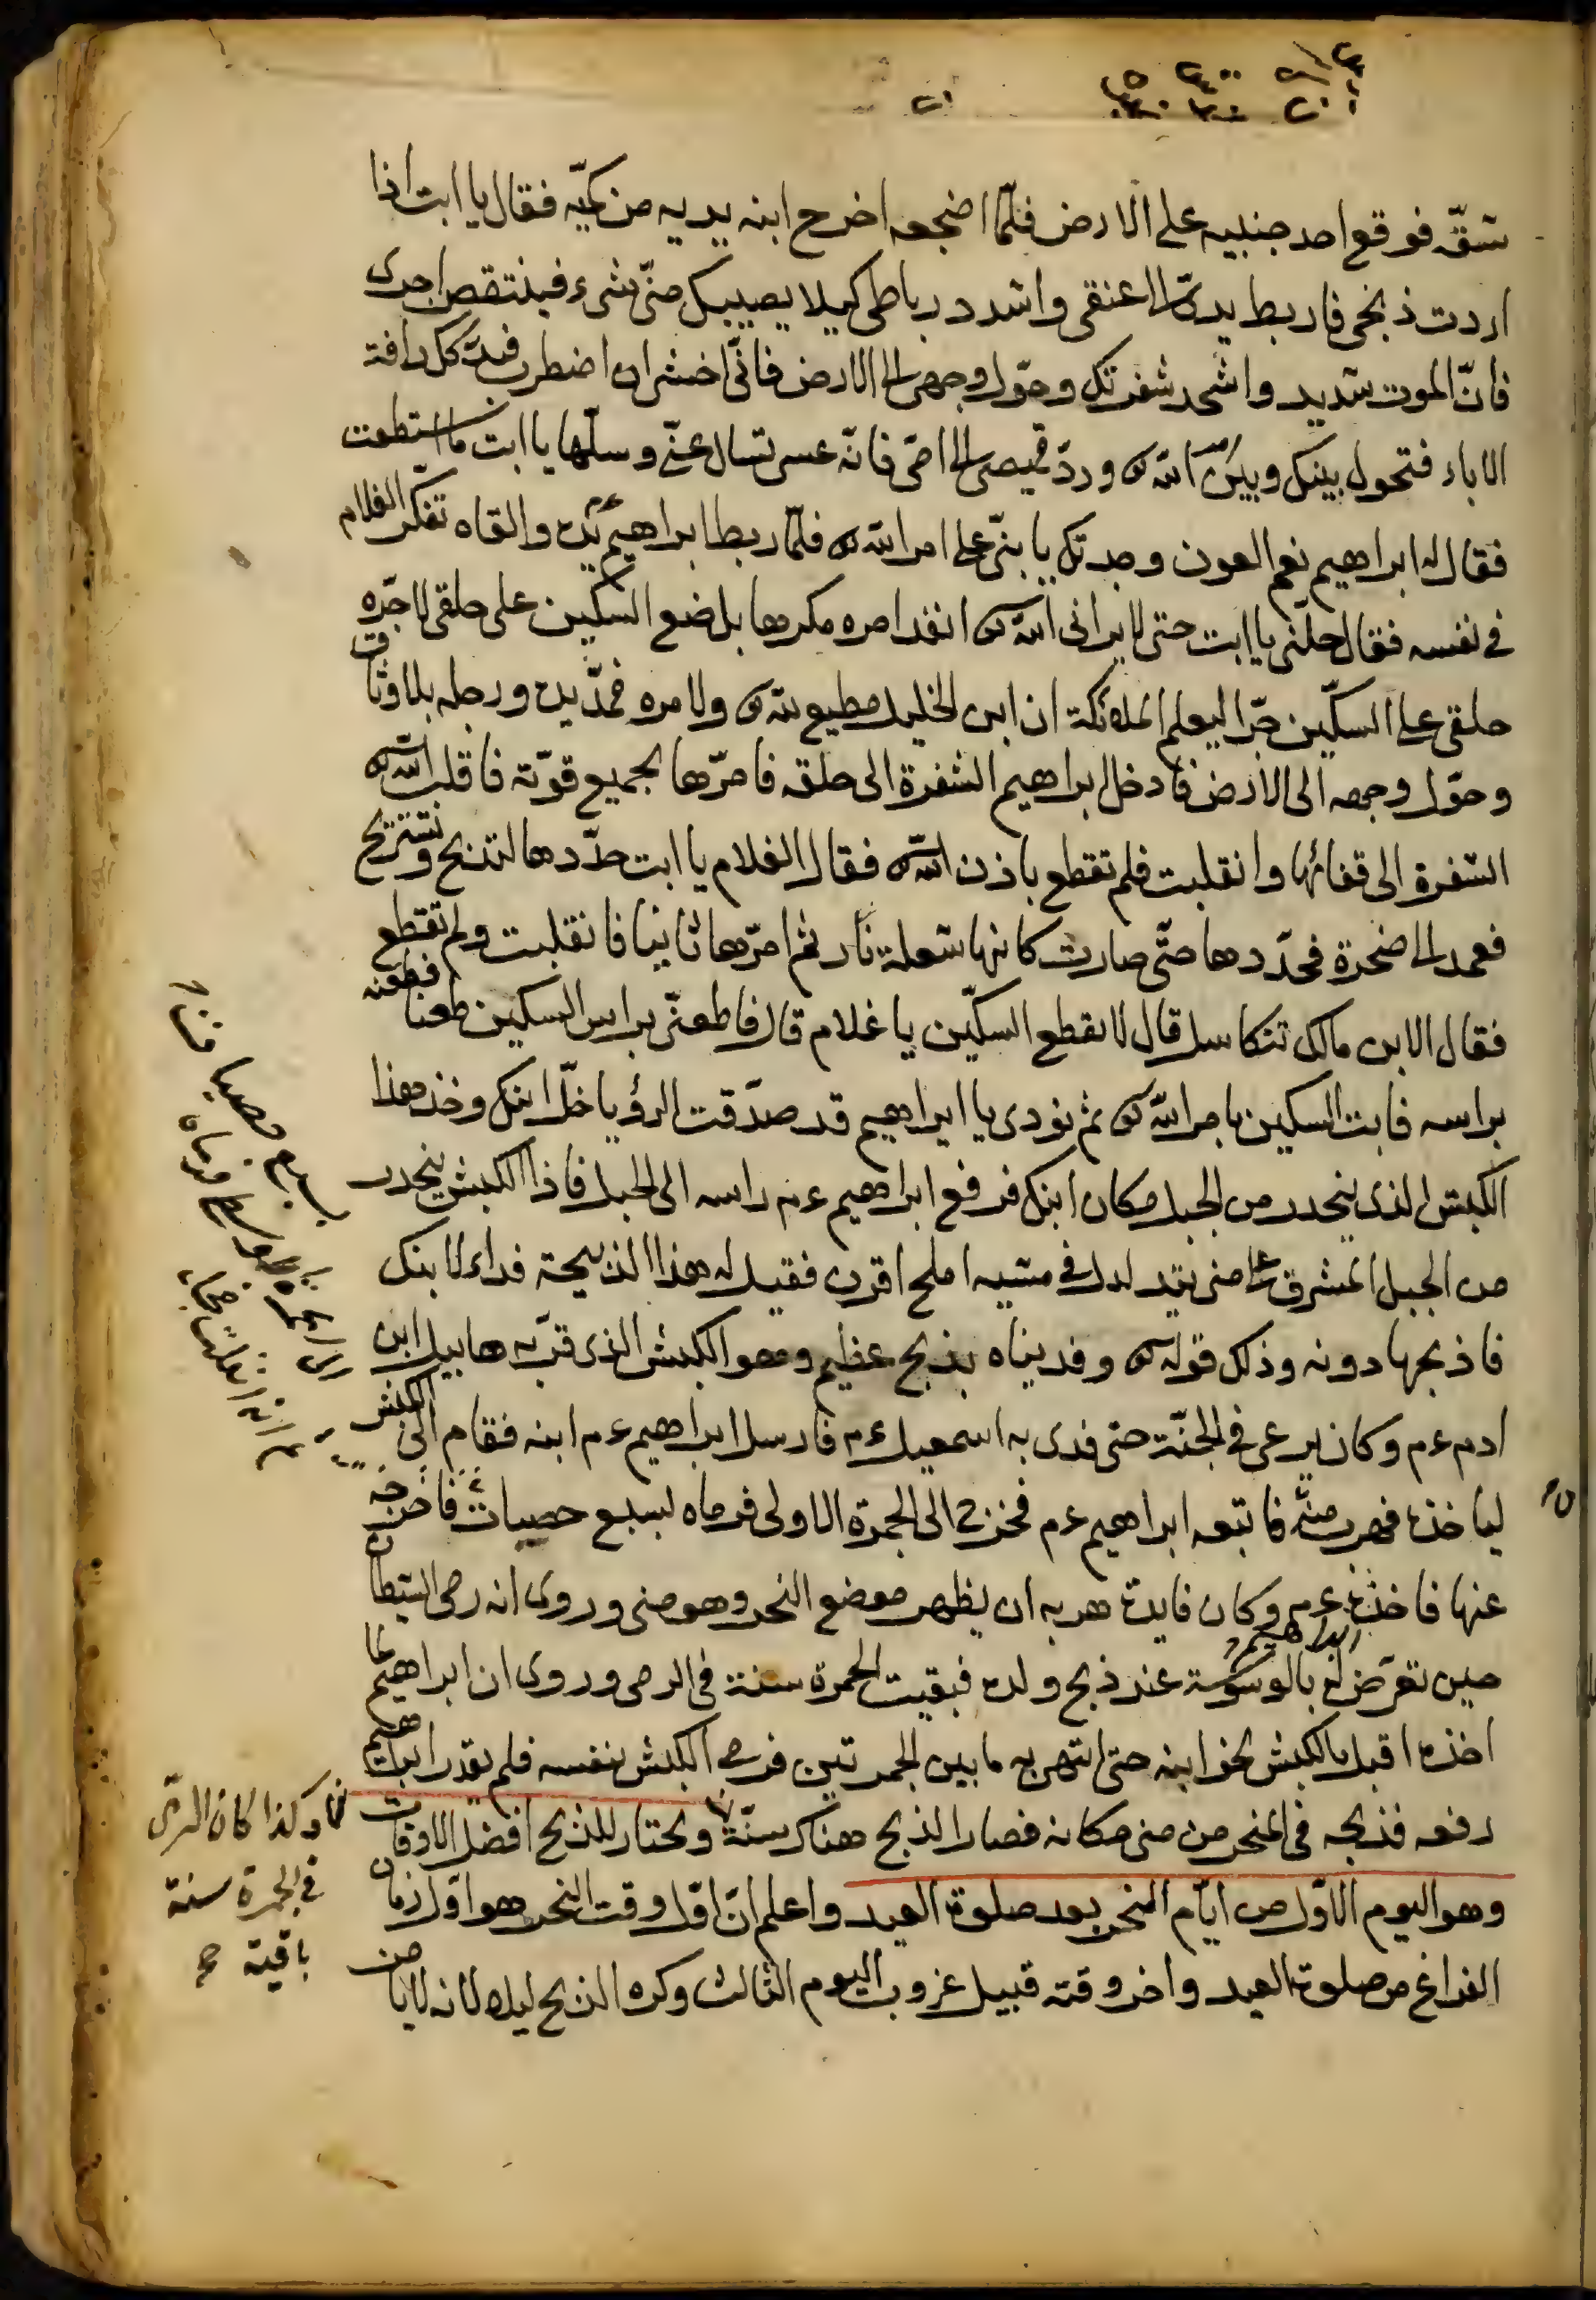 شقّه فوقع احد جنبيه على الارض فلمّا اضجعه اخرج ابنه يديه من كميّه فقال يا ابت اذا
اردت ذبحى فاربط يدىّ الى عنقى واشدد رباطى كيلا يصيبك منّى شىء فينتقص اجرى
فانّ الموت شديد واشحد شفرتك وحوّل وجهى الى الارض فانّى اخشى ان اضطرب فيدركك رافة
الاباء فتحول بينك وبين امر الله تع وردّ قميصى الى امّى فانّه عسى تسال عنّى وسلّها يا ابت ما استطعت
فقال له ابراهيم نعم العون وجدتك يا بنىّ على امر الله تع فلمّا ربط ابراهيم عم يديه والقاه تفكر الغلام
فى نفسه فقال حلّنى يا ابت حتى لا يرانى الله تع انفذ امره مكرها بل ضع السكين على حلقى لاجرّه
حلقى على السكّين جرّا ليعلم الملائكة ان ابن الخليل مطيع لله تع ولامره فمدّ يديه ورجله بلا وثاق
وحوّل وجهه الى الارض فادخل ابراهيم الشفرة الى حلقه فامرّها بجميع قوّته فاقلب الله تع
الشفرة الى قفائها وانقلبت فلم تقطع باذن الله تع فقال الغلام يا ابت حدّدها لتذبح وتستريح
فعمد الى صخرة فحدّدها حتّى صارت كانها شعلة نار ثم امرّها ثانيا فانقلبت ولم تقطع
فقال الابن مالك تتكاسل قال لا يقطع السكّين يا غلام قال فاطعنّى براس السكين طعنا فطعنه
براسه فابت السكين بامر الله تع ثم نودى يا ابراهيم قد صدّقت الرؤيا خلّ ابنك وخذ هذا
الكبش الذى ينحدر من الجبل مكان ابنك فرفع ابراهيم عم راسه الى الجبل فاذا الكبش ينحدر
من الجبل المشرف على منى يتدلدل فى مشيه املح اقرن فقيل له هذا الذبيحة فداء لابنك
فاذبحها دونه وذلك قوله تع وفديناه بذبح عظيم وهو الكبش الذى قرّبه هابيل ابن
ادم عم وكان يرعى فى الجنّة حتى فدى به اسمعيل عم فارسل ابراهيم عم ابنه فقام الى الكبش
لياخذه فهرب منه فاتبعه ابراهيم عم فخرج الى الجمرة الاولى فرماه بسبع حصيات فاخرجه
عنها فاخذه عم وكان فايدة هربه ان يظهر موضع النحر وهو منى وروى انه رمى الشيطان
حين تعرّض له ابراهيم بالوسوسة عند ذبح ولده فبقيت الجمرة سنة فى الرمى وروى ان ابراهيم لما
اخذه اقبل بالكبش نحو ابنه حتى انتهى به ما بين الجمرتين فرمى الكبش بنفسه فلم يقدر ابراهيم
رفعه فذبحه فى المنحر من منى مكانه فصار الذبح هناك سنّة ويختار للذبح افضل الاوقات
وهو اليوم الاوّل من ايّام النحر بعد صلوة العيد واعلم انّ اوّل وقت النحر هو اوّل زمان
الفراغ من صلوة العيد واخر وقته قبيل غروب اليوم الثالث وكره الذبح ليلا لانه لا يأمن
وكذا كان الرمى
فى الجمرة سنة
باقية